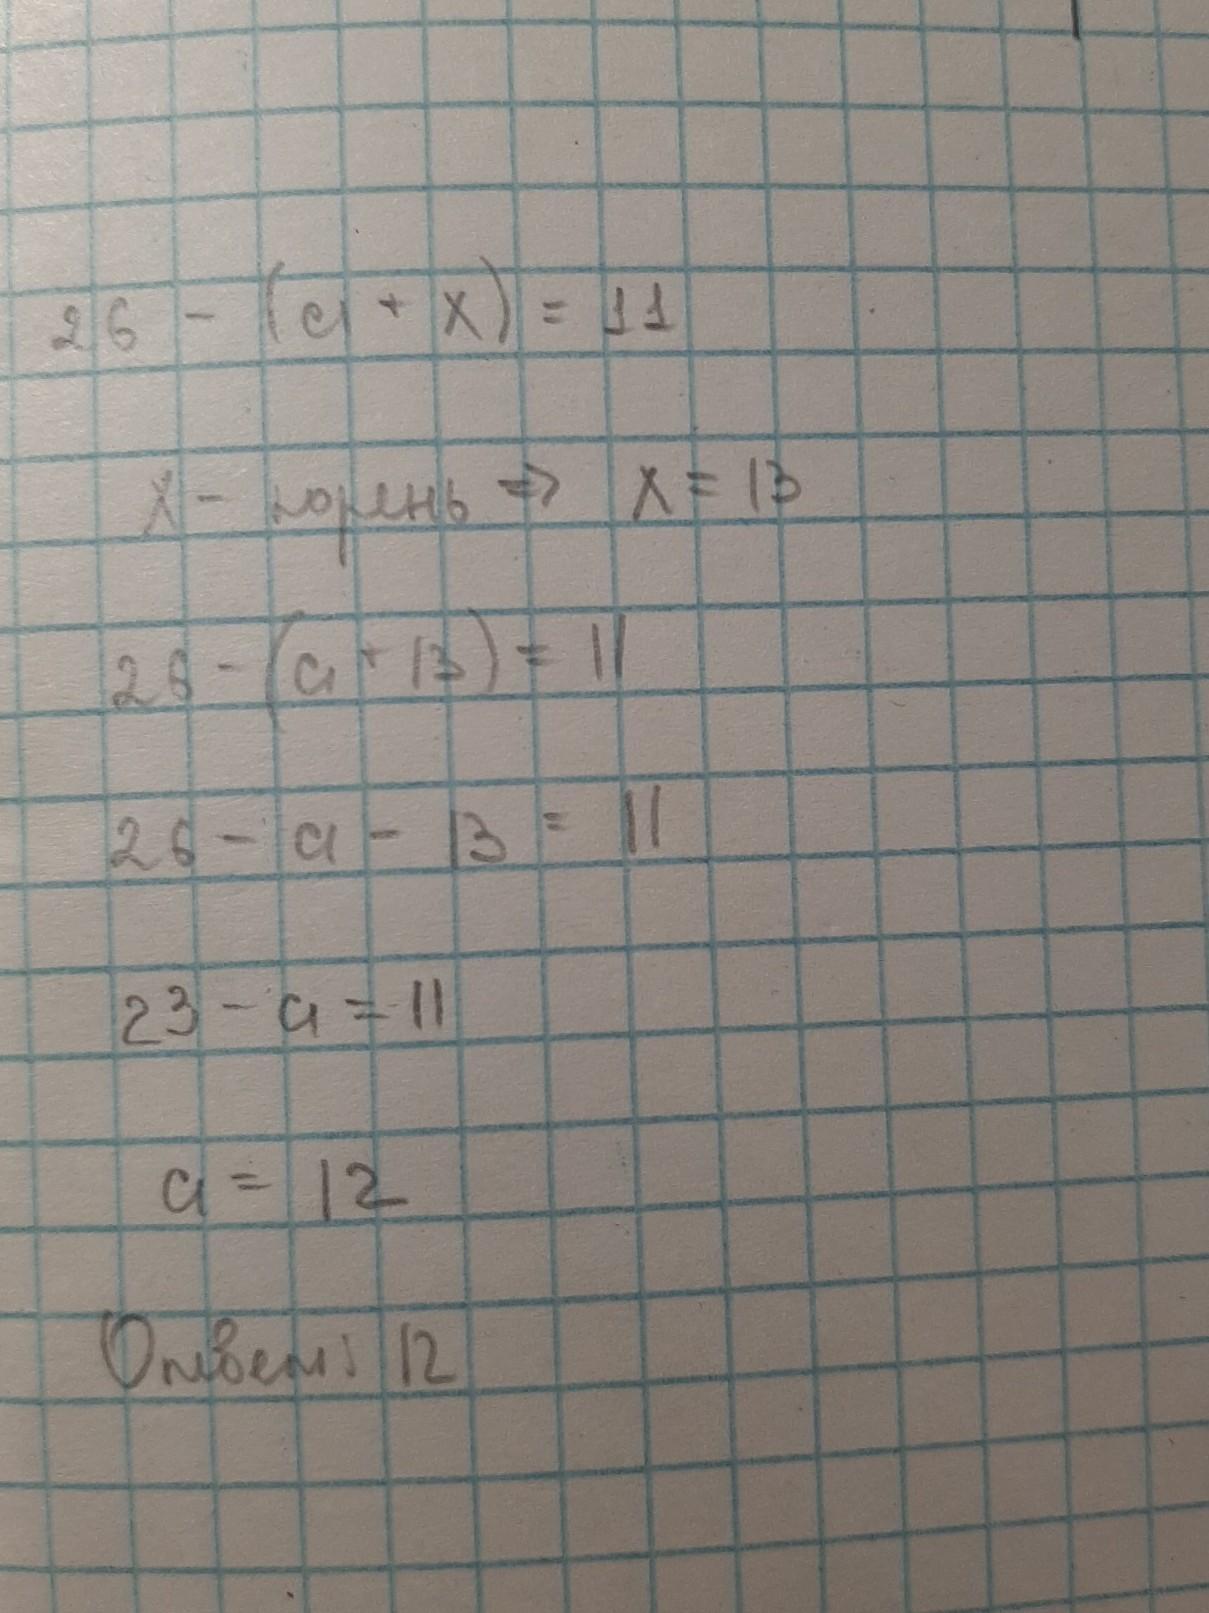 26 - (a + x) = 11
x - корень => x = 13
26 - (a + 13) = 11
26 - a - 13 = 11
23 - a = 11
a = 12
Ответ: 12